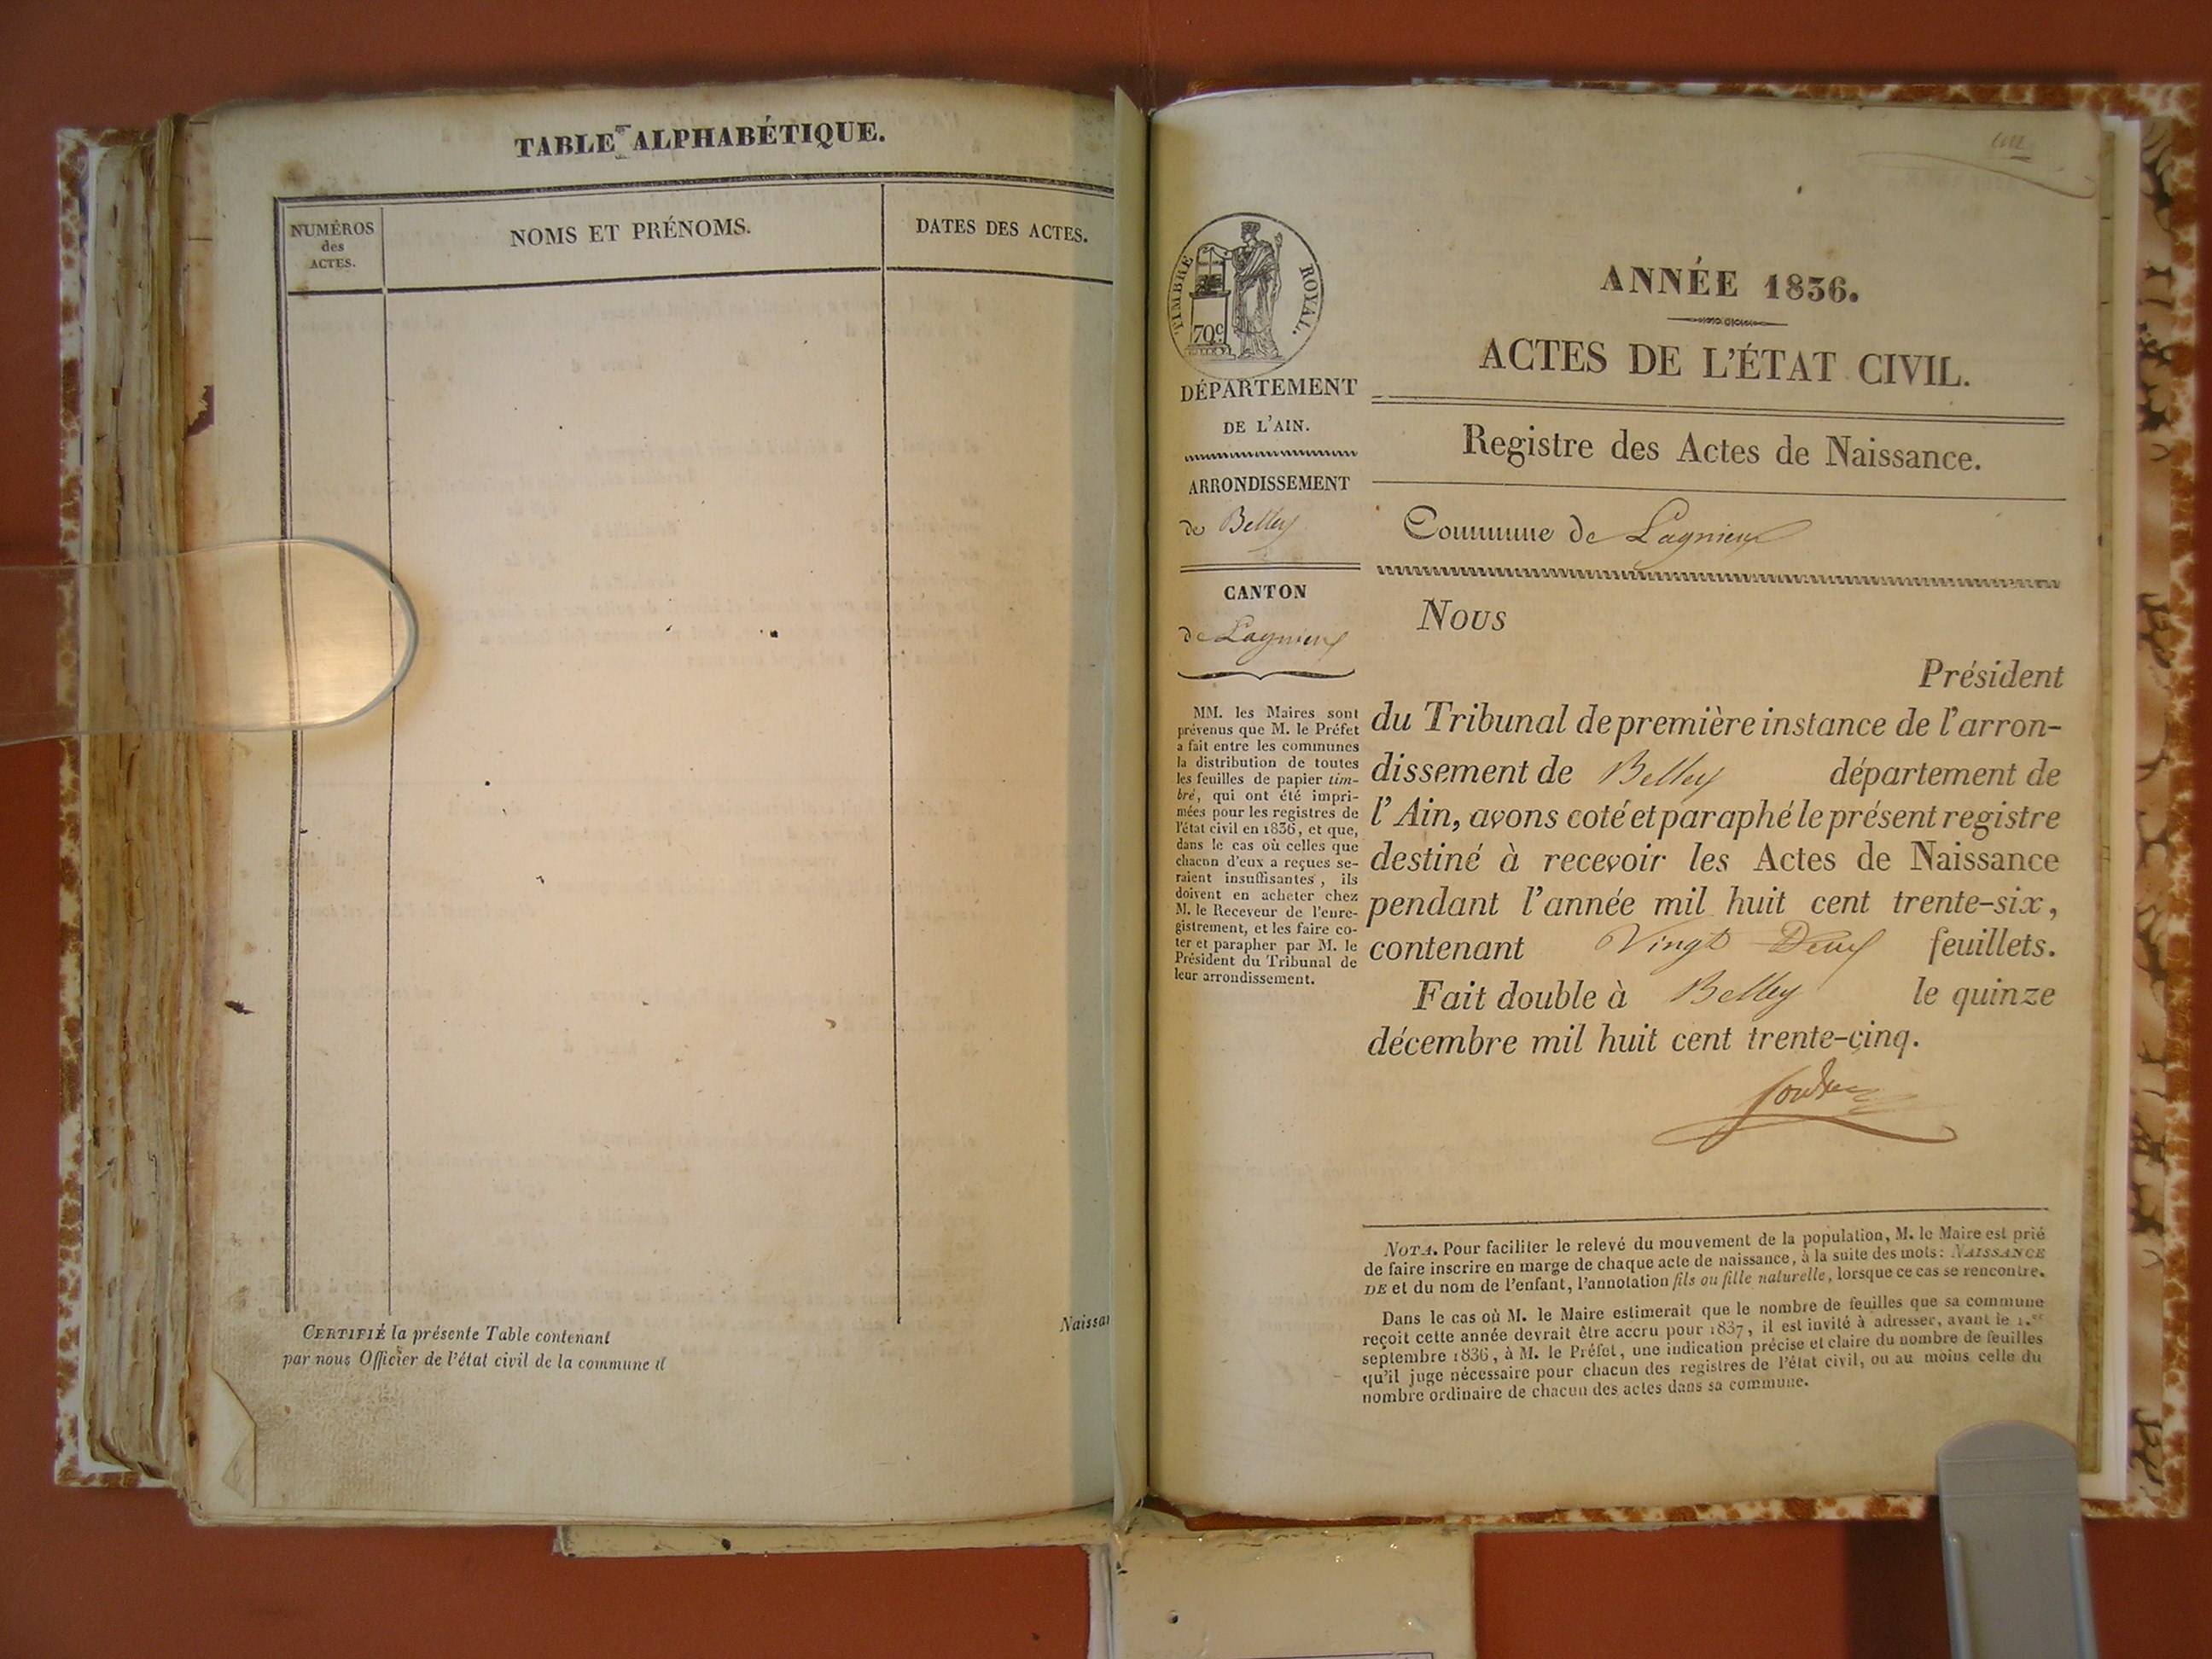 TABLE ALPHABÉTIQUE.
NUMÉROS
des
ACTES.
NOMS ET PRÉNOMS.
DATES DES ACTES.
CERTIFIÉ la présente Table contenant
par nous Officier de l'état civil de la commune d
Naissan
TIMBRE ROYAL.
70c
DÉPARTEMENT
DE L'AIN.
ARRONDISSEMENT
de Belley
CANTON
de Lagnieux
MM. les Maires sont
prévenus que M. le Préfet
a fait entre les communes
la distribution de toutes
les feuilles de papier tim-
bré, qui ont été impri-
mées pour les registres de
l'état civil en 1836, et que,
dans le cas où celles que
chacun d'eux a reçues se-
raient insuffisantes, ils
doivent en acheter chez
M. le Receveur de l'enre-
gistrement, et les faire co-
ter et parapher par M. le
Président du Tribunal de
leur arrondissement.
ANNÉE 1836.
ACTES DE L'ÉTAT CIVIL.
Registre des Actes de Naissance.
Commune de Lagnieux
Nous
Président
du Tribunal de première instance de l'arron-
dissement de Belley département de
l'Ain, avons coté et paraphé le présent registre
destiné à recevoir les Actes de Naissance
pendant l'année mil huit cent trente-six,
contenant Vingt Deux feuillets.
Fait double à Belley le quinze
décembre mil huit cent trente-cinq.
NOTA. Pour faciliter le relevé du mouvement de la population, M. le Maire est prié
de faire inscrire en marge de chaque acte de naissance, à la suite des mots: NAISSANCE
DE et du nom de l'enfant, l'annotation fils ou fille naturelle, lorsque ce cas se rencontre.
Dans le cas où M. le Maire estimerait que le nombre de feuilles que sa commune
reçoit cette année devrait être accru pour 1837, il est invité à adresser, avant le 1.er
septembre 1836, à M. le Préfet, une indication précise et claire du nombre de feuilles
qu'il juge nécessaire pour chacun des registres de l'état civil, ou au moins celle du
nombre ordinaire de chacun des actes dans sa commune.